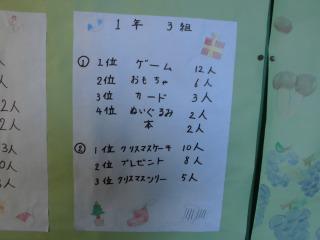 1年 3組
① 1位 ゲーム 12人
2位 おもちゃ 6人
3位 カード 3人
4位 ぬいぐるみ 2人
本 2人
② 1位 クリスマスケーキ 10人
2位 プレゼント 8人
3位 クリスマスツリー 5人
2人
2人
3人
0人
3人